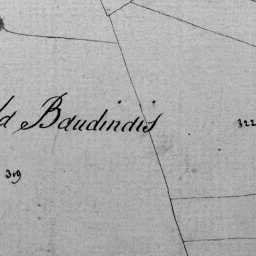 d Baudindis
322
319